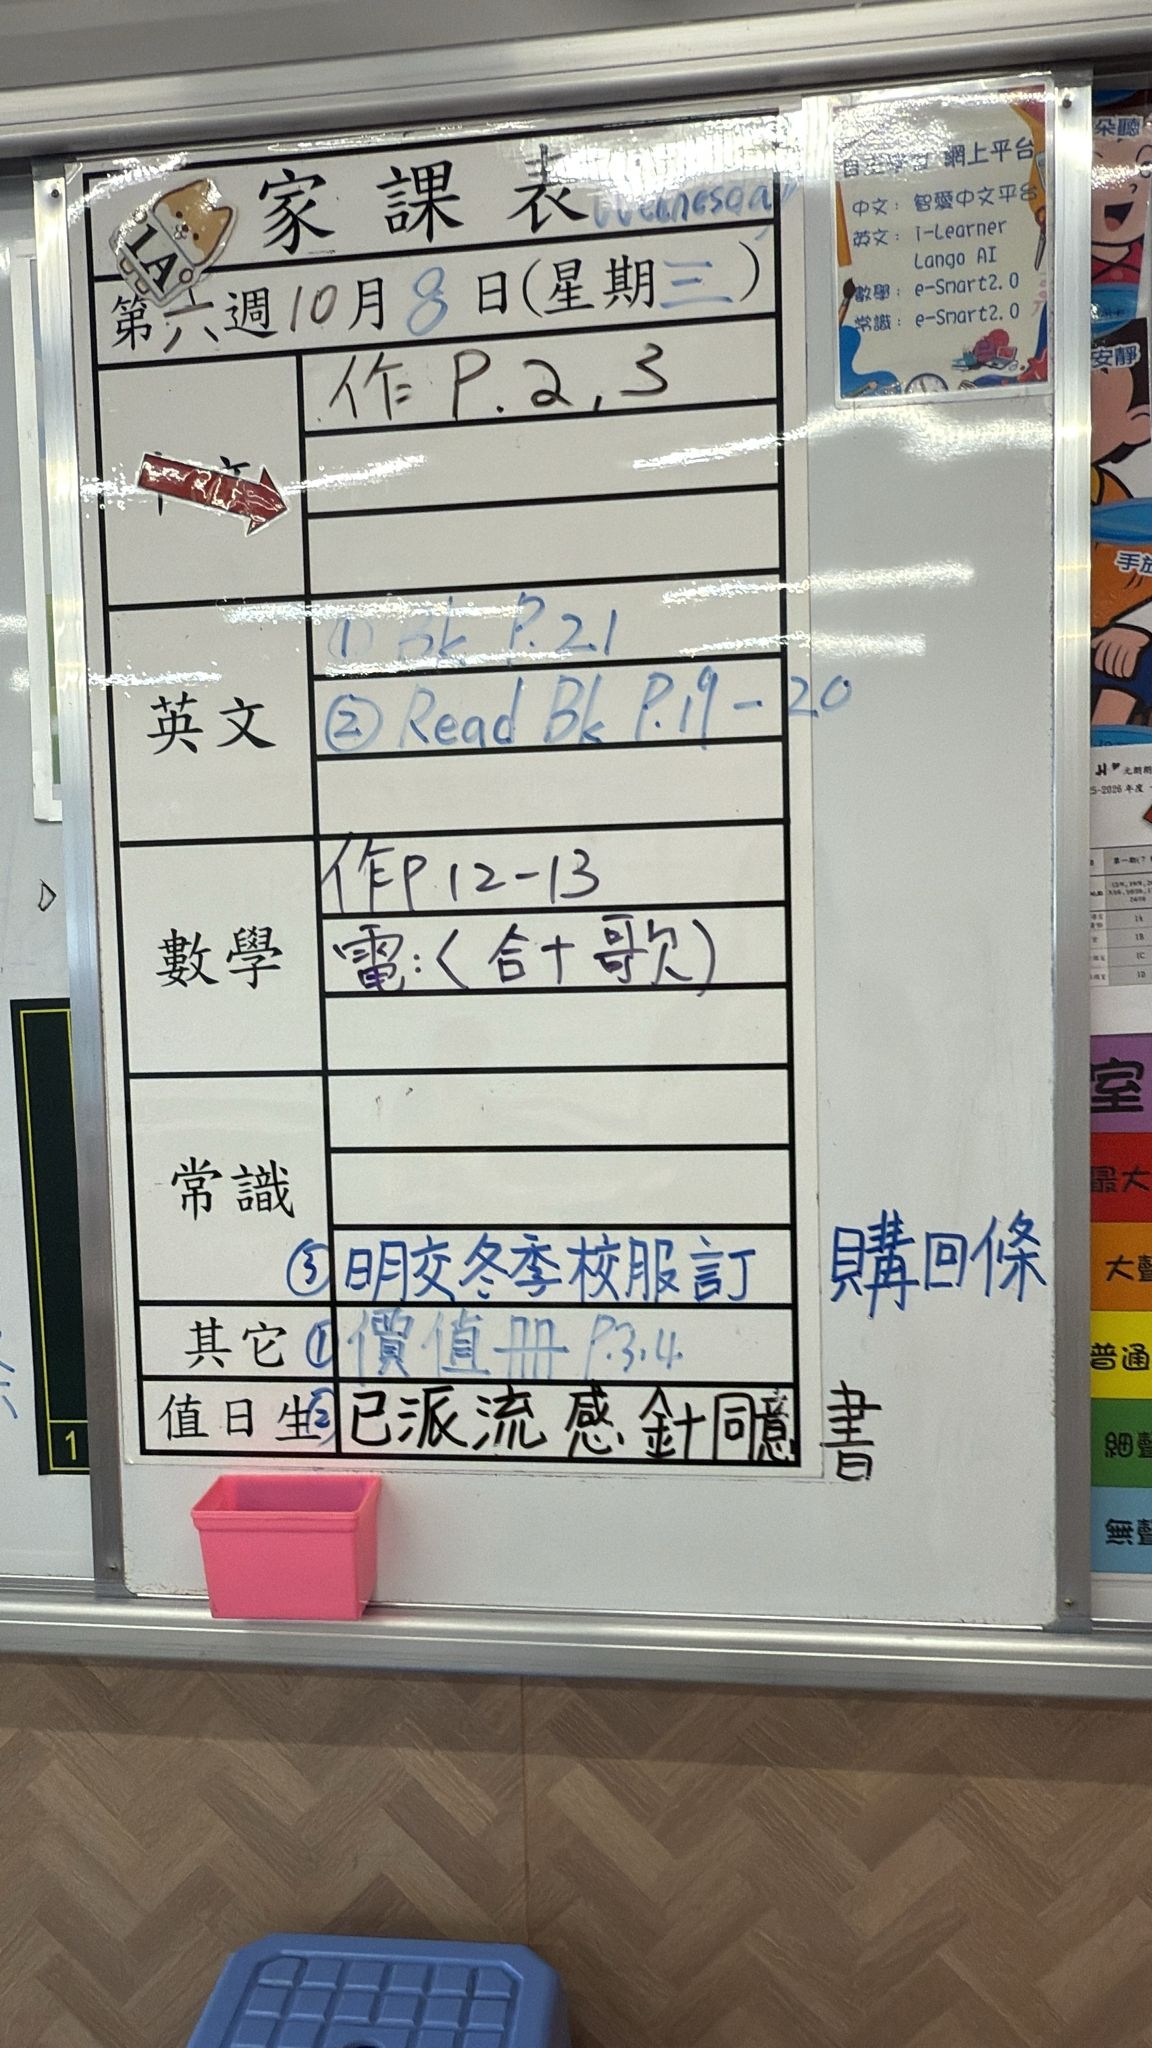 家課表 Wednesday
1A
第六週10月8日(星期三)
作 P.2,3
英文
① Bk P.21
② Read Bk P.19-20
數學
作P.12-13
電:〈合十歌〉
常識
③ 明交冬季校服訂購回條
其它
① 價值冊 P.3,4
值日生
② 已派流感針同意書
網上平台
中文: 智愛中文平台
英文: i-Learner
Lango AI
數學: e-Smart2.0
常識: e-Smart2.0
安靜
室
最大
大聲
普通
1A
1B
1C
1D
1